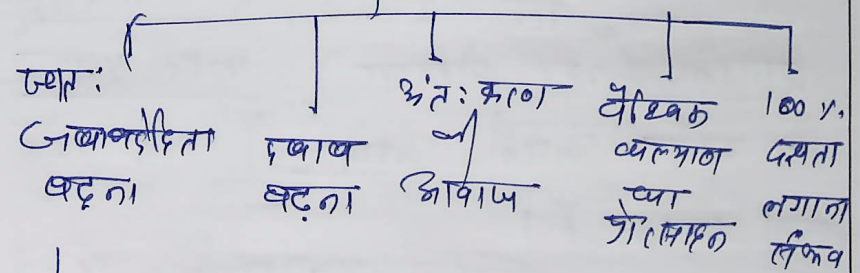 स्वत:
जबावदेहिता
बढ़ना
दबाब
बढ़ना
अंत: करण
की
आवाज
वैश्विक
कल्याण
का
प्रोत्साहन
100 %
दक्षता
लगाना
संभव